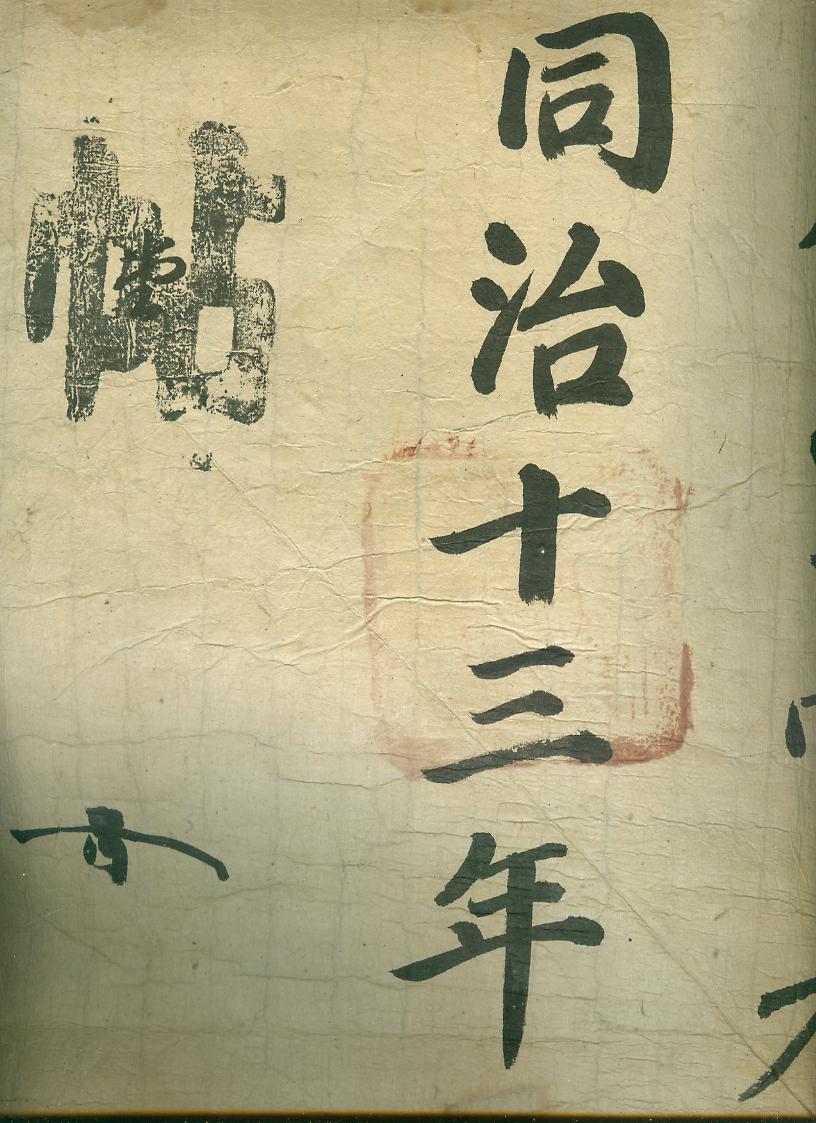 同治十三年
帖
堂